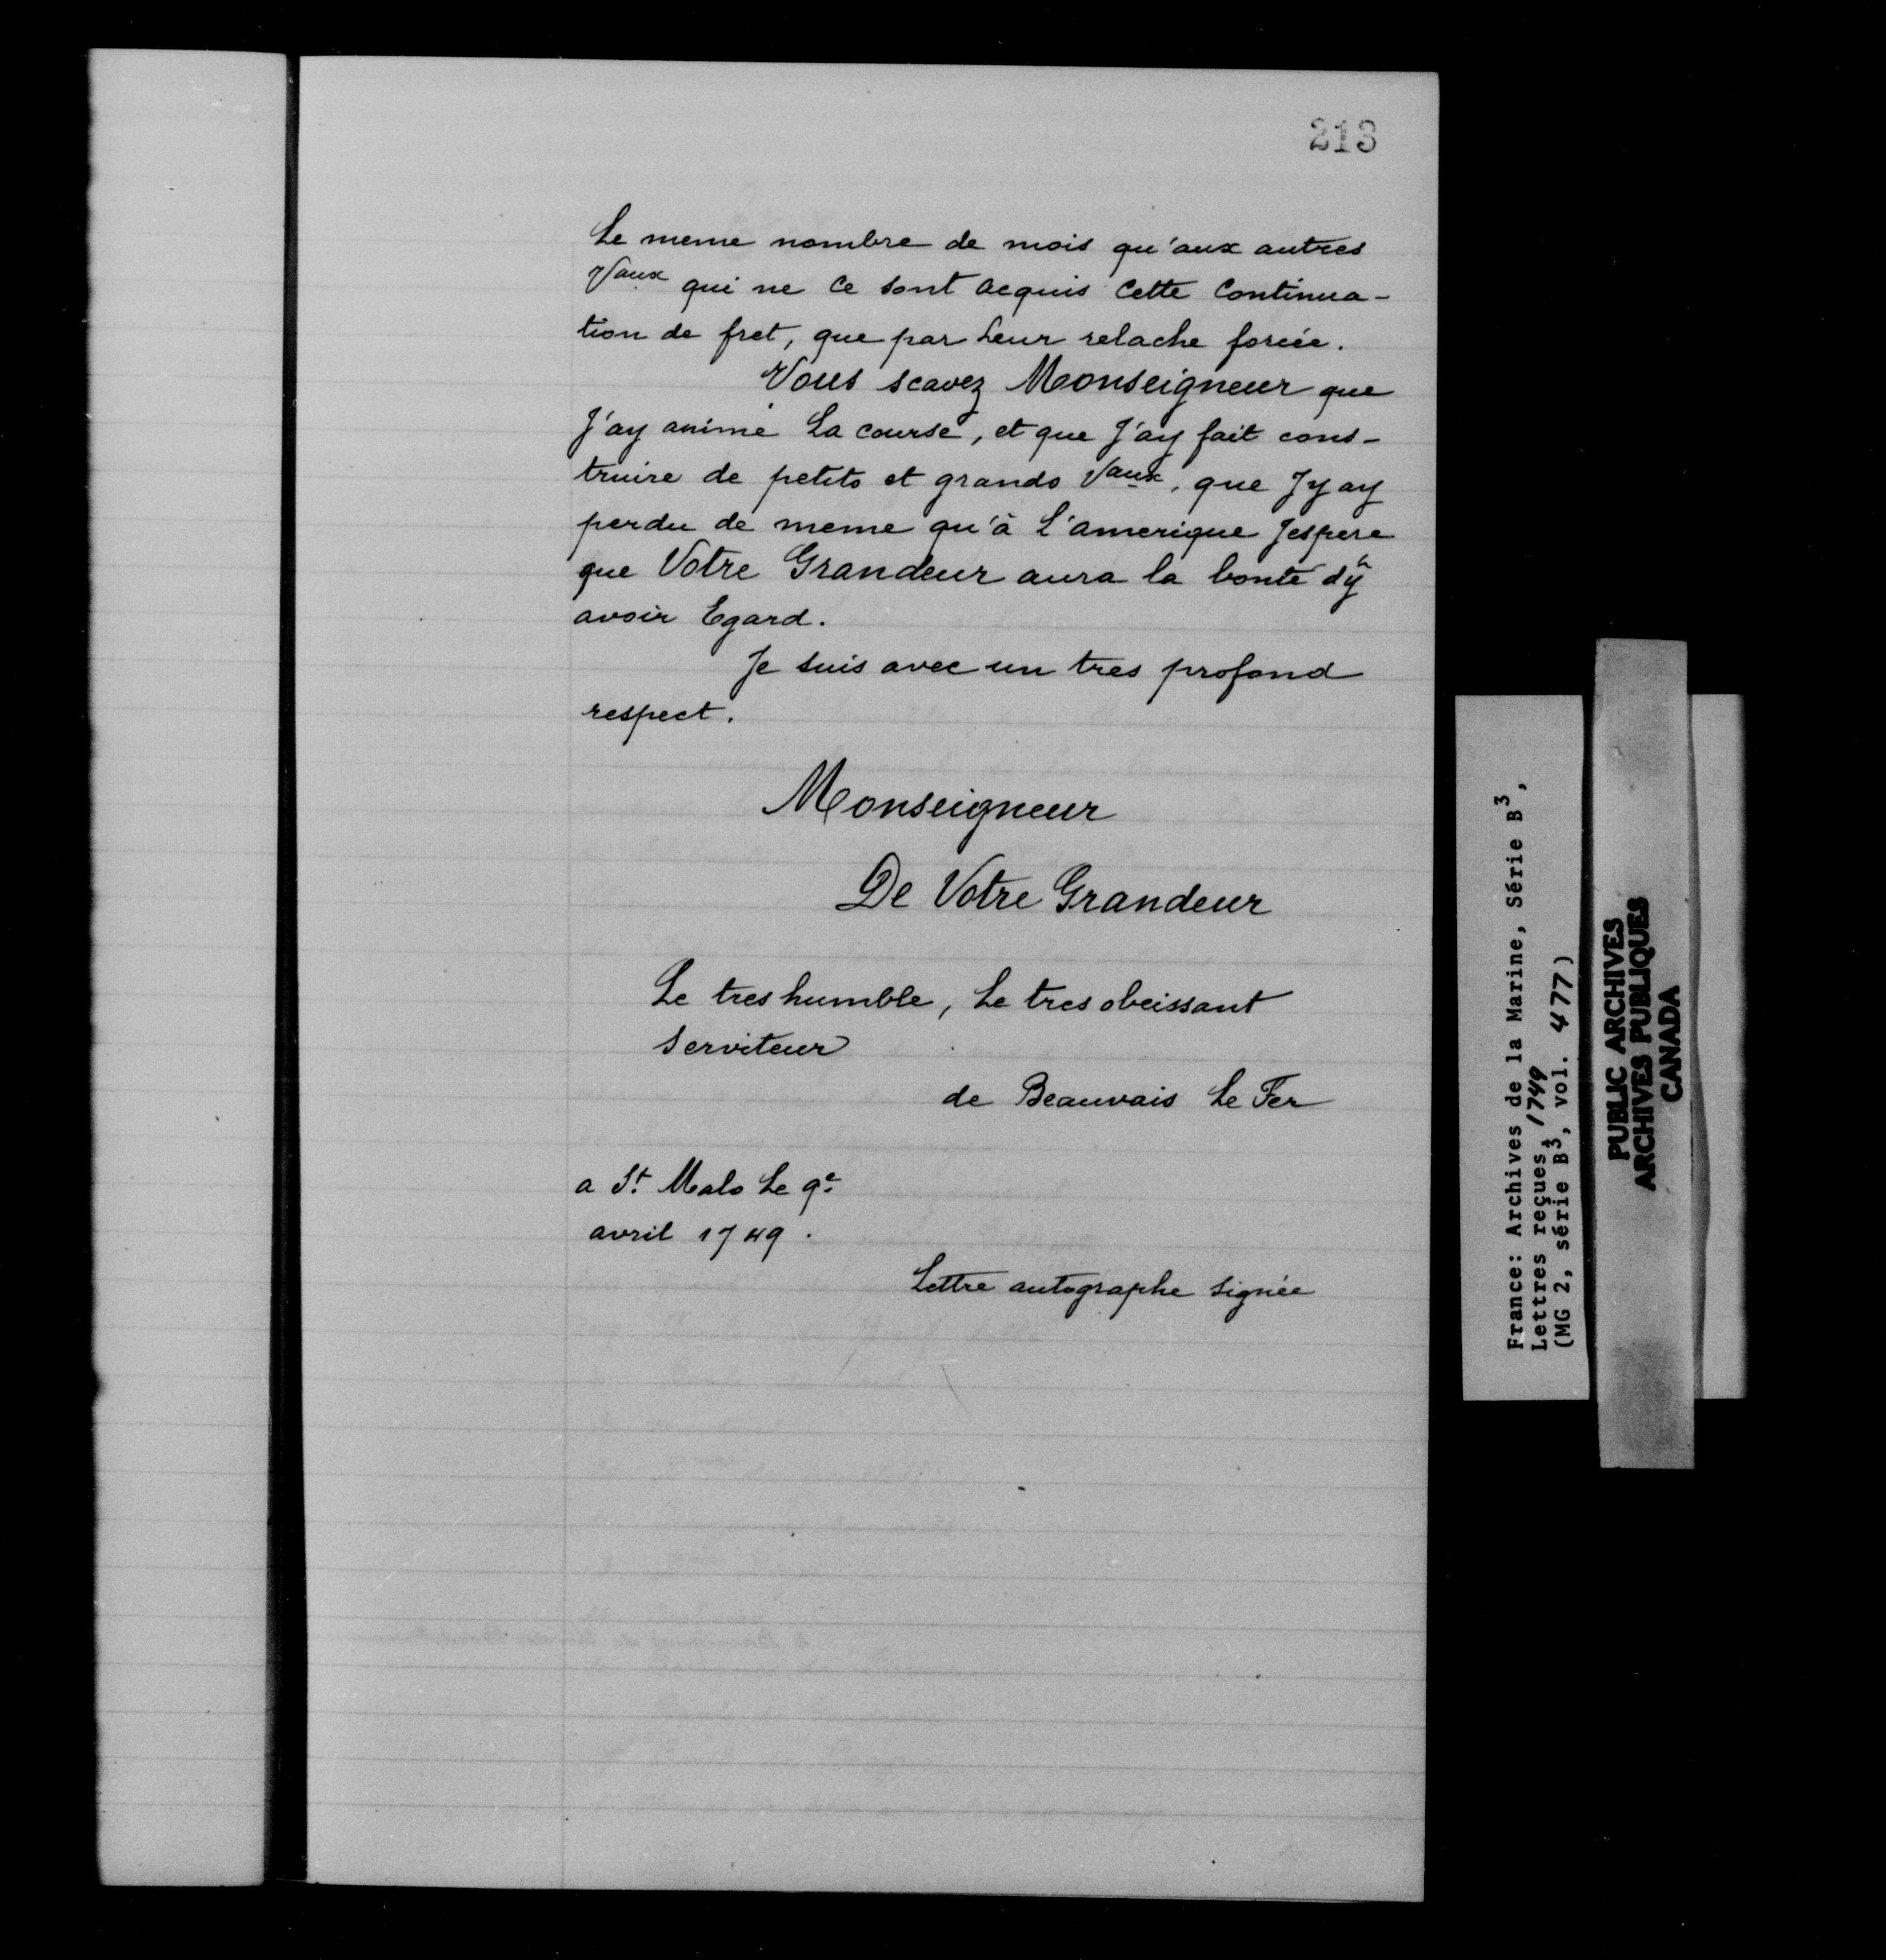 213
Le meme nombre de mois qu'aux autres
Vaux qui ne ce sont acquis cette continua-
tion de fret, que par Leur relache forcée.
Vous scavez Monseigneur que
J'ay animé La course, et que J'ay fait cons-
truire de petits et grands Vaux, que Jy ay
perdu de meme qu'à L'amerique Jespere
que Votre Grandeur aura la bonté dÿ
avoir Egard.
Je suis avec un tres profond
respect.
Monseigneur
De Votre Grandeur
Le tres humble, Le tres obeissant
Serviteur
de Beauvais Le Fer
a St. Malo Le 9e
avril 1749.
Lettre autographe signée
France: Archives de la Marine, Série B3,
Lettres reçues, 1749
(MG 2, série B3, vol. 477)
PUBLIC ARCHIVES
ARCHIVES PUBLIQUES
CANADA